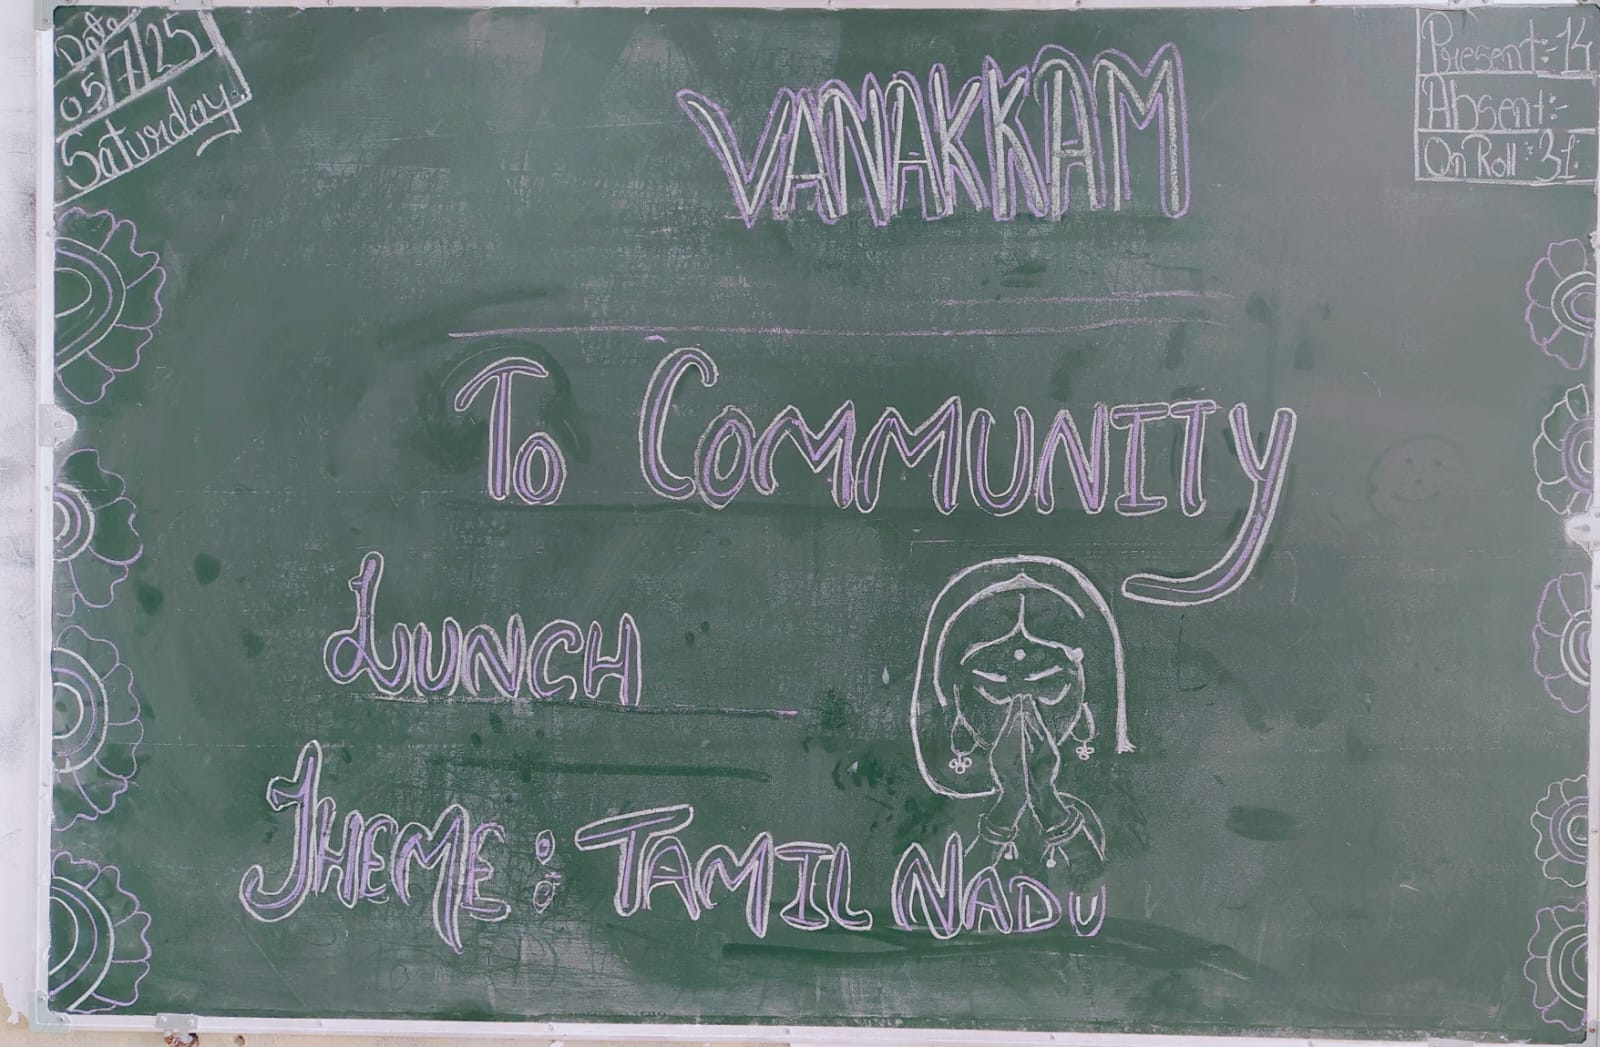 Date
05/7/25
Saturday.
Present:-14
Absent:-
On Roll:31
VANAKKAM
To COMMUNITY
LUNCH
THEME: TAMIL NADU